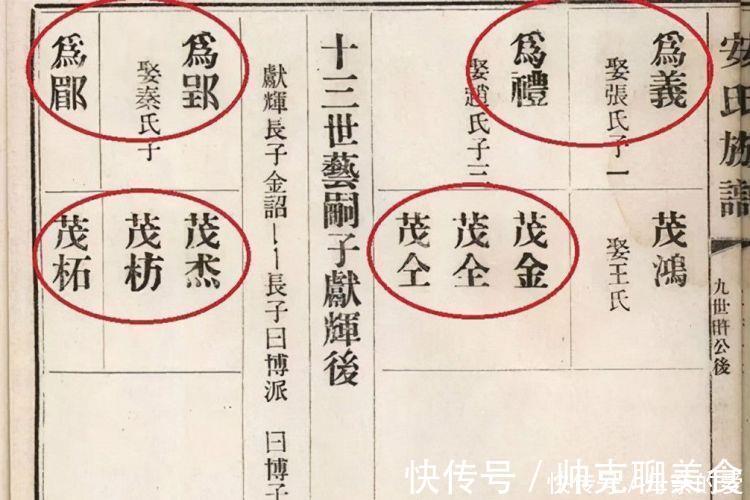 安氏族譜
九世
公後
為義
娶張氏子一
茂鴻
娶王氏
為禮
娶趙氏子三
茂金
茂仝
茂仝
十三世藝嗣子獻輝後
獻輝長子金詔
長子曰博派
曰博子
為郢
娶秦氏子
為郿
茂杰
茂枋
茂柘
快传号／帅克聊美食